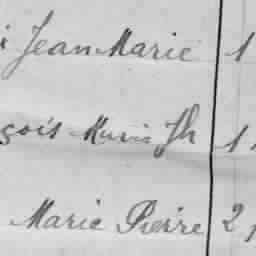 i Jean Marie 1
çois Marie Jh 1
Marie Pierre 2